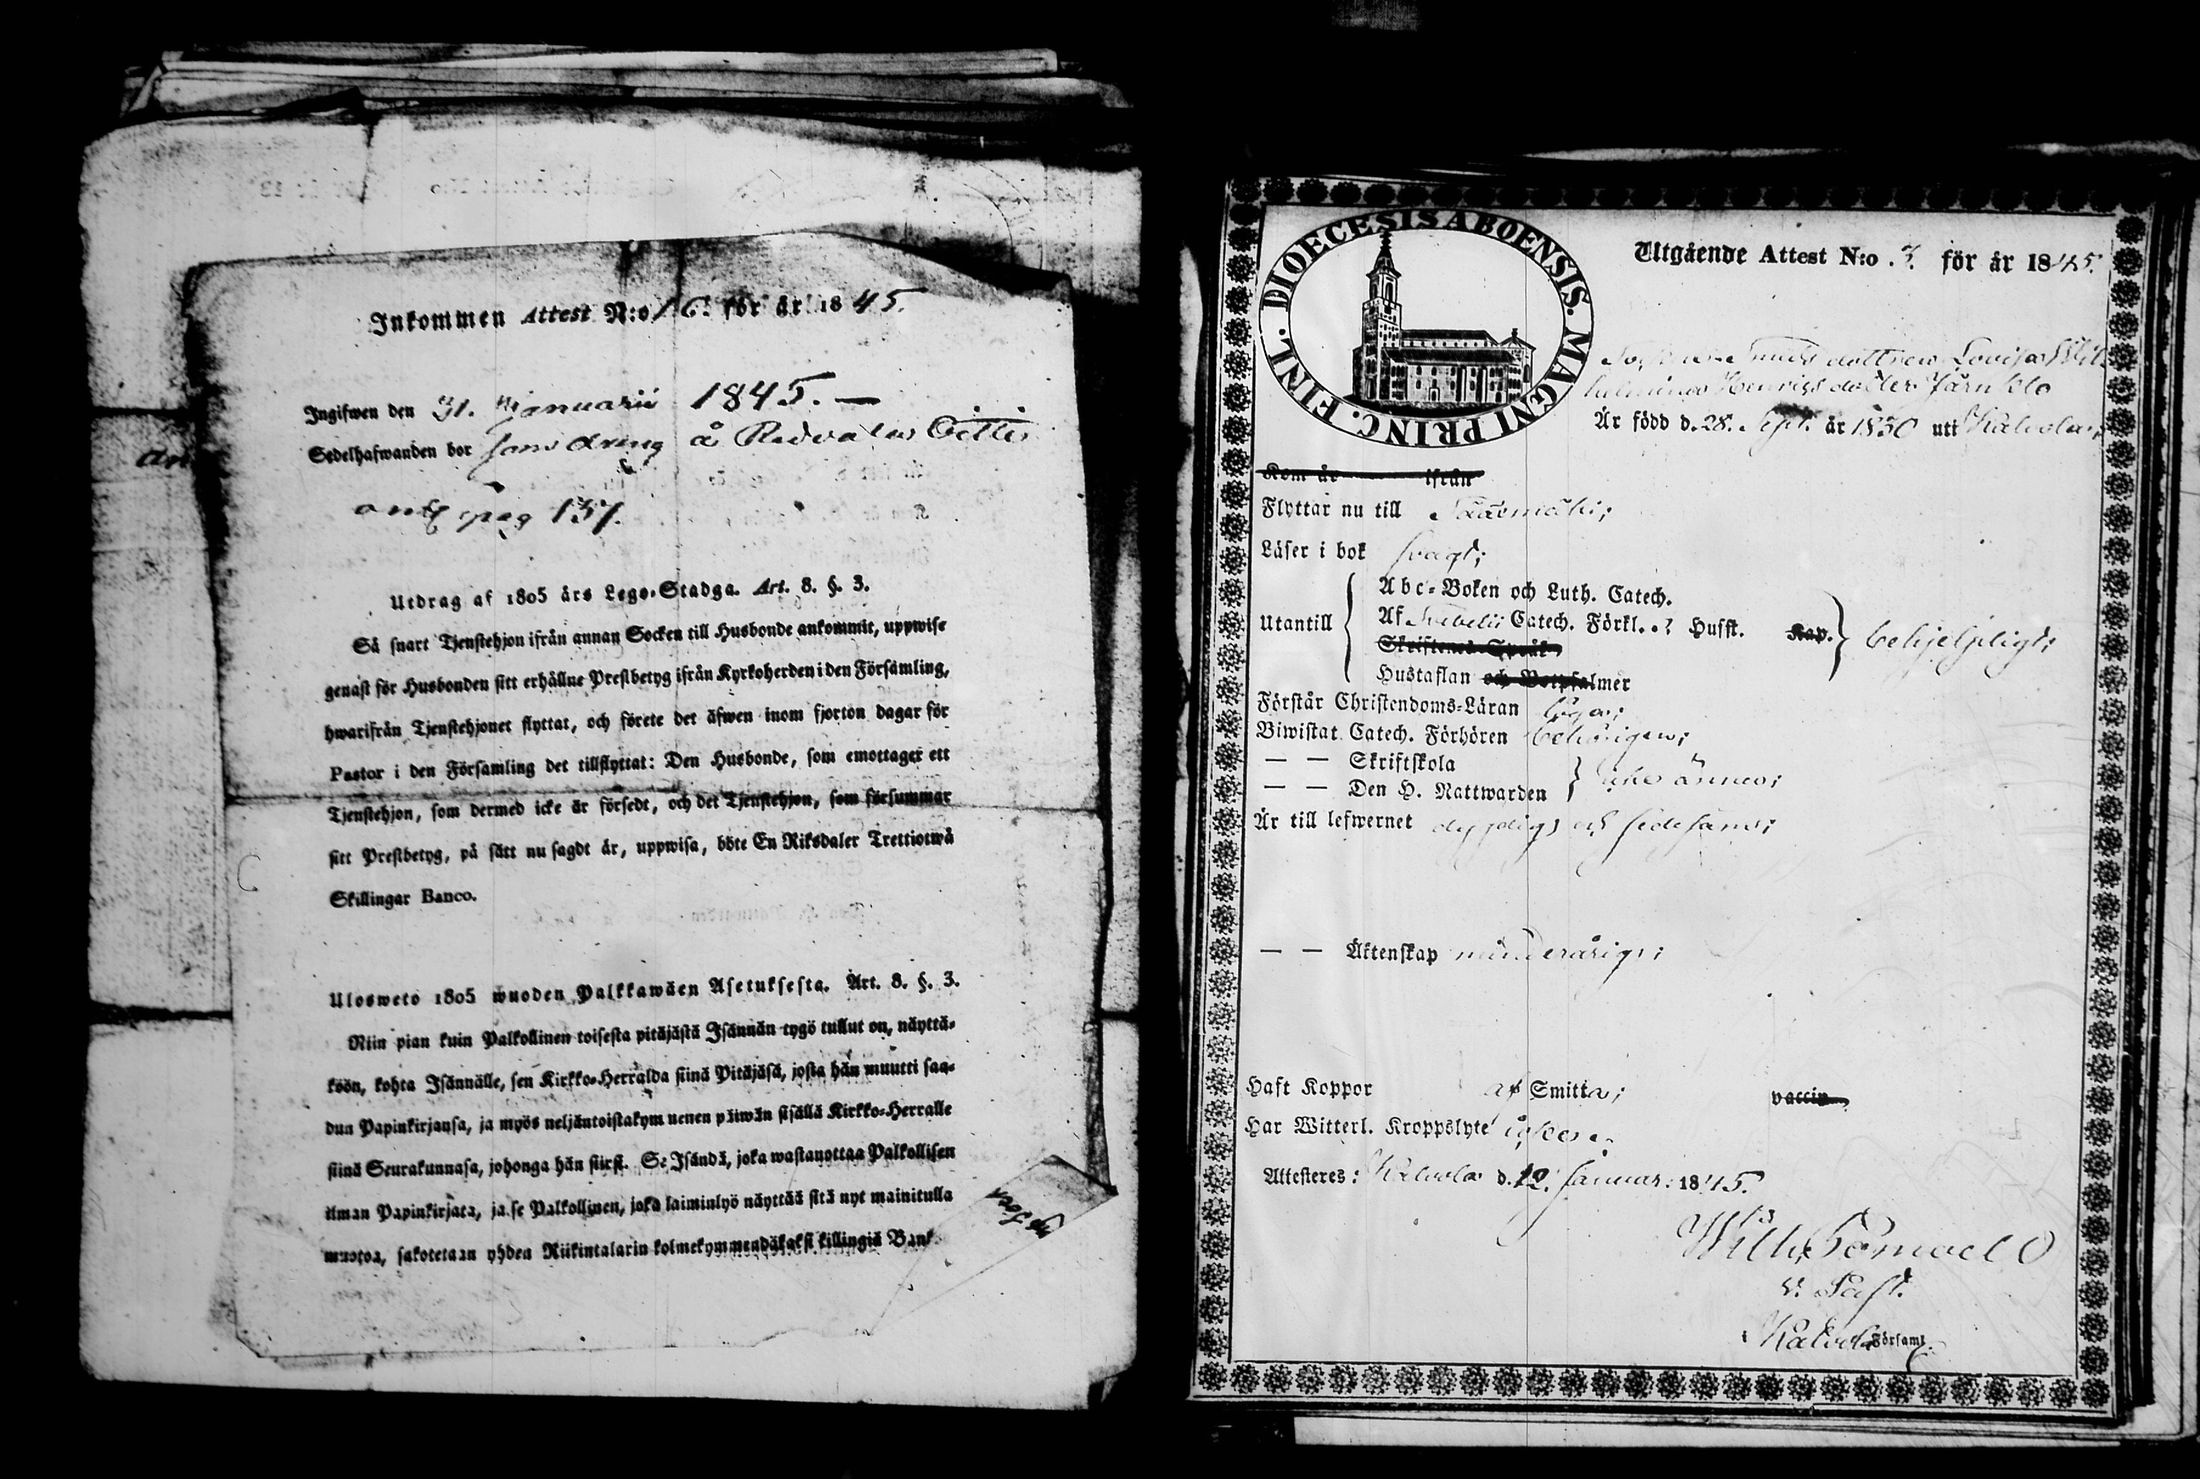 Inkommen Attest N:o 16. för år 1845.
Ingifwen den 31. Januarii 1845. —
Sedelhafwanden bor som dräng å
pag 137.
Utdrag af 1805 års Lego-Stadga. Art. 8. §. 3.
Så snart Tjenstehjon ifrån annan Socken till Husbonde ankommit, uppwise
genast för Husbonden sitt erhållne Prestbetyg ifrån Kyrkoherden i den Församling,
hwarifrån Tjenstehjonet flyttat, och förete det äfwen inom fjorton dagar för
Pastor i den Församling det tillflyttat: Den Husbonde, som emottager ett
Tjenstehjon, som dermed icke är försedt, och det Tjenstehjon, som försummar
sitt Prestbetyg, på sätt nu sagdt är, uppwisa, böte En Riksdaler Trettiotwå
Skillingar Banco.
Ulosweto 1805 wuoden Palkkawäen Asetuksesta. Art. 8. §. 3.
Niin pian kuin Palkollinen toisesta pitäjästä Isännän tygö tullut on, näyttä-
köön, kohta Isännälle, sen Kirkko-Herralda siinä Pitäjäsä, josta hän muutti saa-
dun Papinkirjansa, ja myös neljäntoistakymmenen päiwän sisällä Kirkko-Herralle
siinä Seurakunnasa, johonga hän siirsi. Se Isändä, joka wastanottaa Palkollisen
ilman Papinkirjata, ja se Palkollinen, joka laiminlyö näyttää sitä nyt mainitulla
muotoa, sakotetaan yhden Riikintalarin kolmekymmendäkaksi killingiä Bank
DIOECESIS ABOENSIS. MAGNI PRINC. FINL.
Utgående Attest N:o 3. för år 1845.
dottren Lovisa Wil-
helmina Henrigsdotter Järn
Är född d. 28. Sept. år 1830 uti Kalvola;
Kom år ifrån
Flyttar nu till Sääxmäki;
Läser i bok svagt;
Utantill
Abc-Boken och Luth. Catech.
Af Svebelii Catech. Förkl. Husst. Kap.
Skriftenes Språk
Hustaflan och Botpsalmer
behjelpligt;
Förstår Christendoms-Läran
Biwistat Catech. Förhören behörigen;
— — Skriftskola
— — Den H. Nattwarden
icke ännu;
Är till lefwernet dygdig och sedesam;
— — Äktenskap minderårig;
Haft Koppor af Smitta; vaccin
Har Witterl. Kroppslyte
Attesteres: Kalvola d. 12. Januar: 1845.
Wilh.
v. Past.
Kalvola Församl.